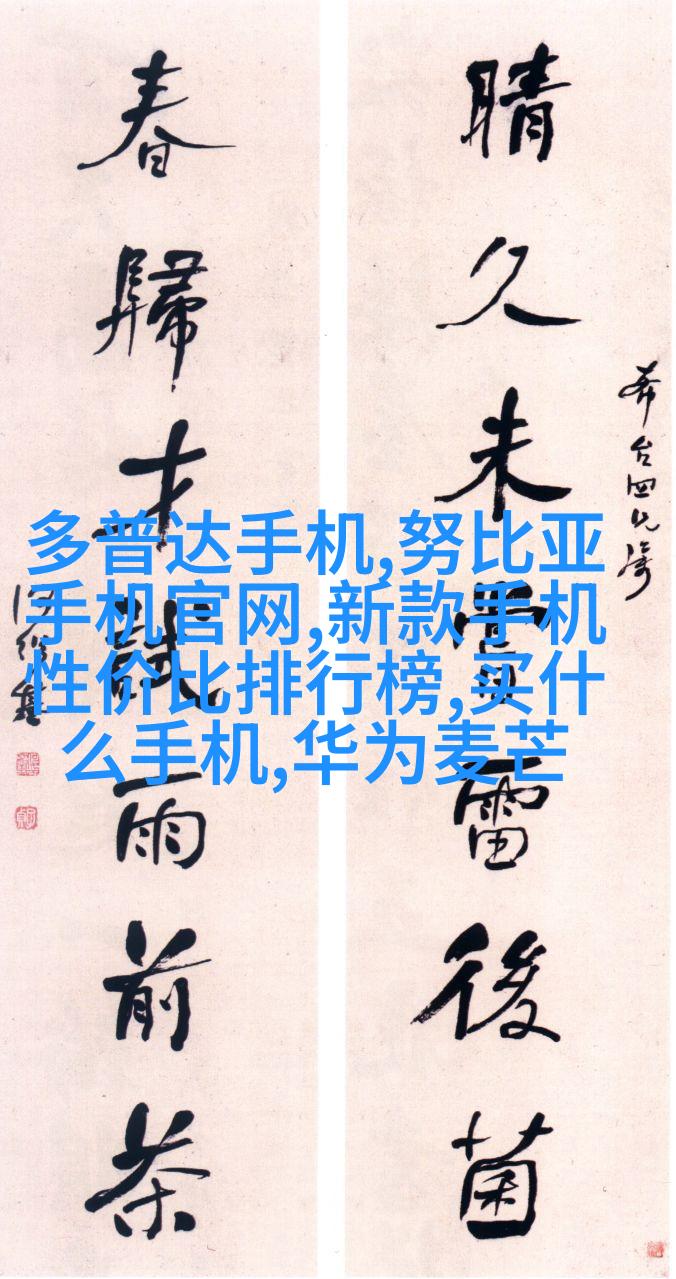 晴久未嘗雷後菌
春歸才試雨前茶
多普达手机,努比亚
手机官网,新款手机
性价比排行榜,买什
么手机,华为麦芒